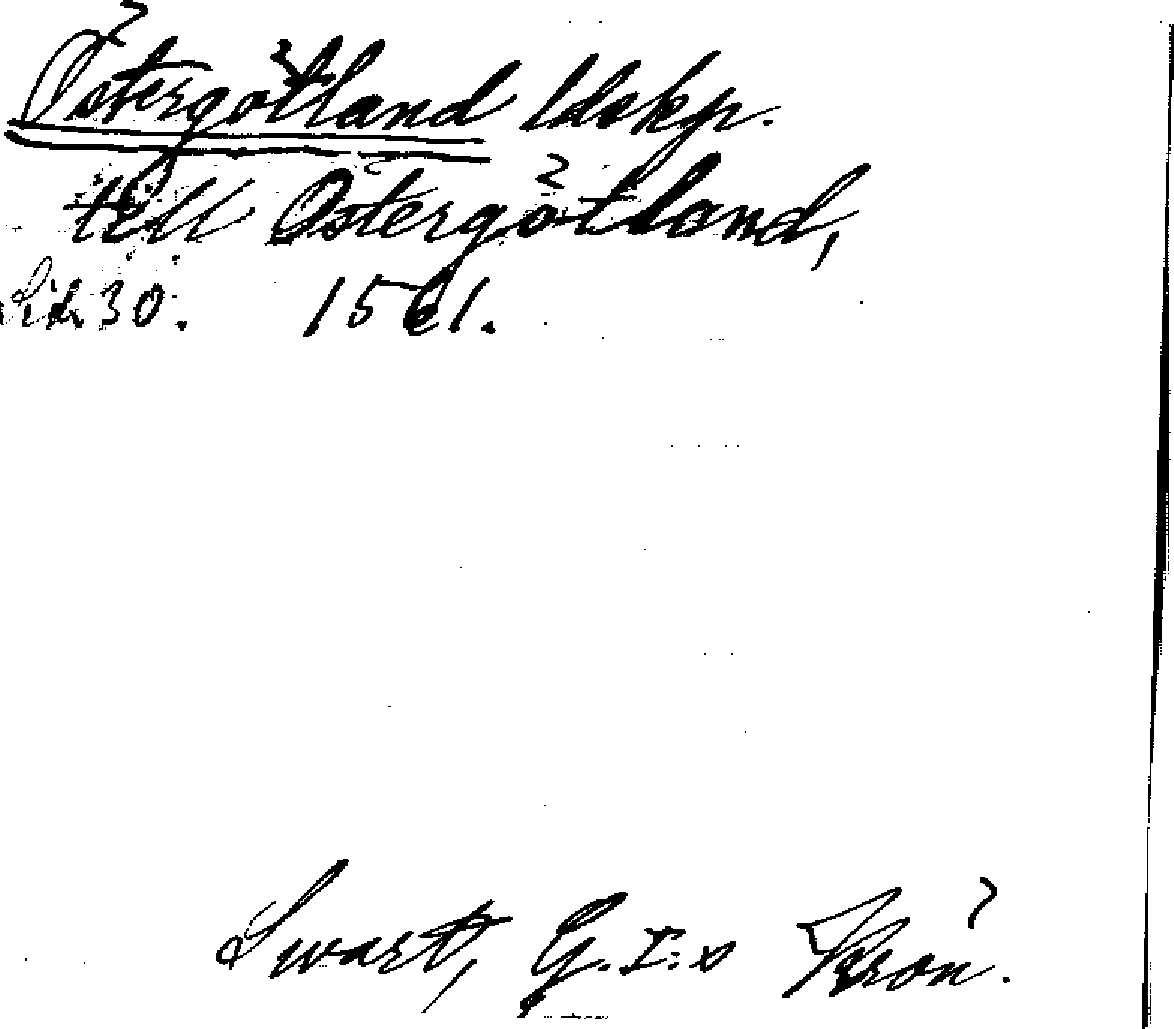 Östergötland ldskp.
till Östergötland,
Sid. 30. 1561.
Swart, G. I:s Krön.